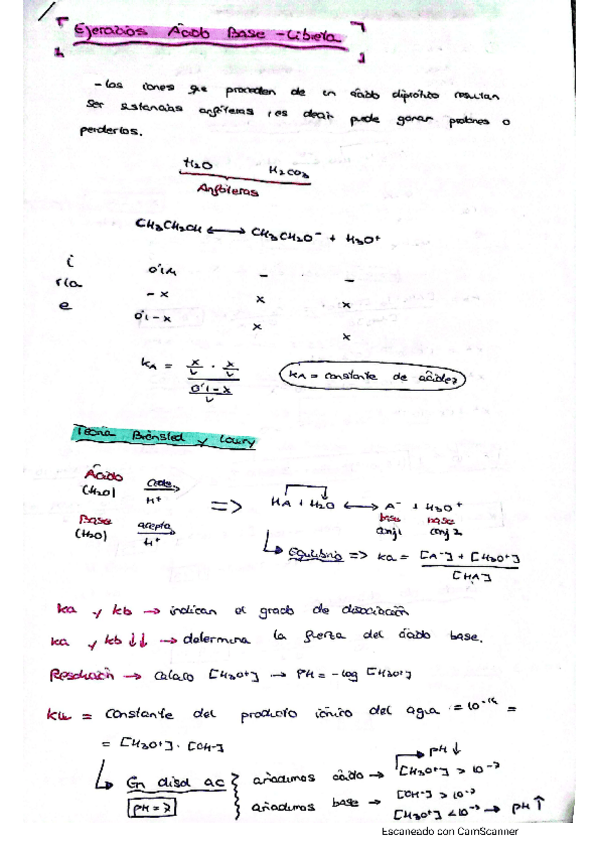 Ejercicios Ácido Base - Libreta
- Los iones que proceden de un ácido diprótico resultan
ser sustancias anfóteras, es decir, puede ganar protones o
perderlos.
H2O H2CO3
Anfóteras
CH3CH2OH ⟷ CH3CH2O⁻ + H3O⁺
i 0'1M - -
rxa - x x x
e 0'1-x x x
KA = x/V · x/V / 0'1-x/V
KA = constante de acidez
Teoría Brönsted y Lowry
Ácido (H2O) Cede H⁺
Base (H2O) acepta H⁺
=> HA + H2O ⟷ A⁻ + H3O⁺
base conj1 conj2
Equilibrio => Ka = [A⁻] + [H3O⁺] / [HA]
Ka y Kb → indican el grado de disociación
Ka y Kb ↓↓ → determina la fuerza del ácido base.
Resolución → Calculo [H3O⁺] → PH = -log [H3O⁺]
Kw = constante del producto iónico del agua = 10⁻¹⁴ =
= [H3O⁺] · [OH⁻]
En disol ac PH = 7
añadimos ácido → [H3O⁺] > 10⁻⁷ → PH ↓
añadimos base → [OH⁻] > 10⁻⁷
[H3O⁺] < 10⁻⁷ → PH ↑
Escaneado con CamScanner